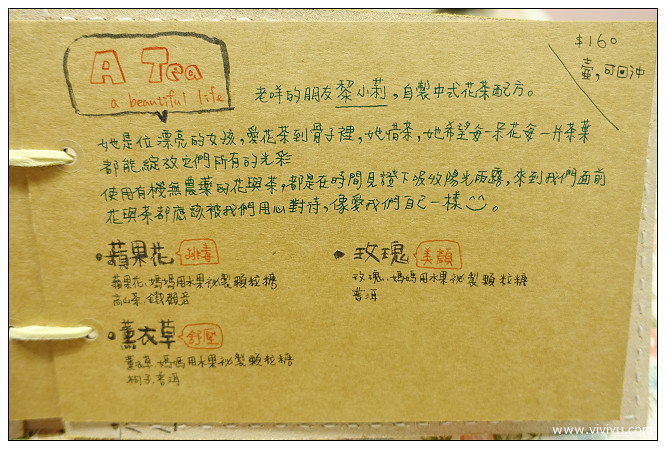 A Tea
a beautiful life
$160
壺,可回沖
老咩的朋友黎小莉,自製中式花茶配方。
她是位漂亮的女孩,愛花茶到骨子裡,她惜茶,她希望每一朵花每一片茶葉
都能綻放它們所有的光彩
使用有機無農藥的花與茶,都是在時間見證下吸收陽光雨露,來到我們面前
花與茶都應該被我們用心對待,像愛我們自己一樣。
蘋果花 排毒
蘋果花.媽媽用水果祕製顆粒糖
高山茶.鐵觀音
玫瑰 美顏
玫瑰.媽媽用水果祕製顆粒糖
普洱
薰衣草 舒壓
薰衣草.媽媽用水果祕製顆粒糖
枸子.普洱
www.viviyu.com